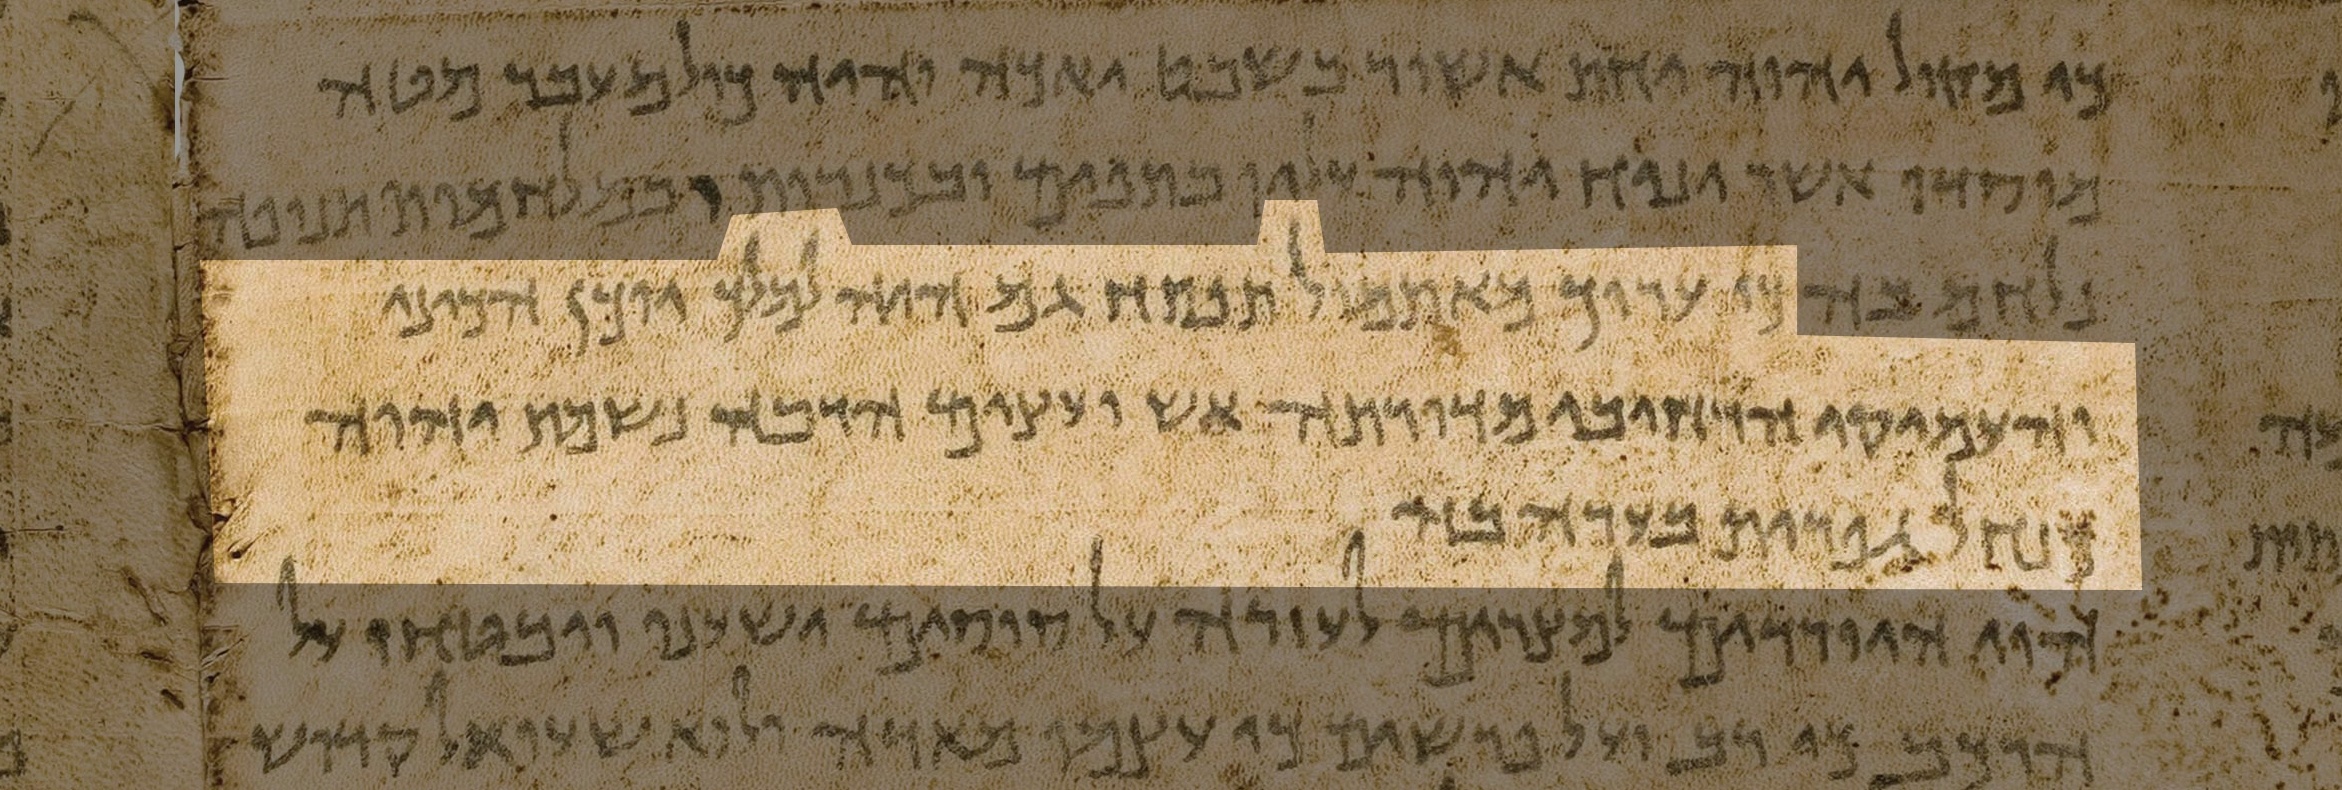 כי מקול יהוה יחת אשור בשבט יאכה והיה כול מעבר מטה
מוסדו אשר יניח יהוה עליו בתפים ובכנרות ובמלחמות תנופה
נלחם בה כי ערוך מאתמול תפתח גם היה למלך יוכן הכינו
והעמיקו הרחיבו מדורתה אש ועצים הרבה נשמת יהוה
כנחל גפרית בערה בה
הוי היורדים למצרים לעזרה על סוסים ישענו ויבטחו על
הרכב כי רב ועל פרשים כי עצמו מאודה ולוא שעו אל קדוש